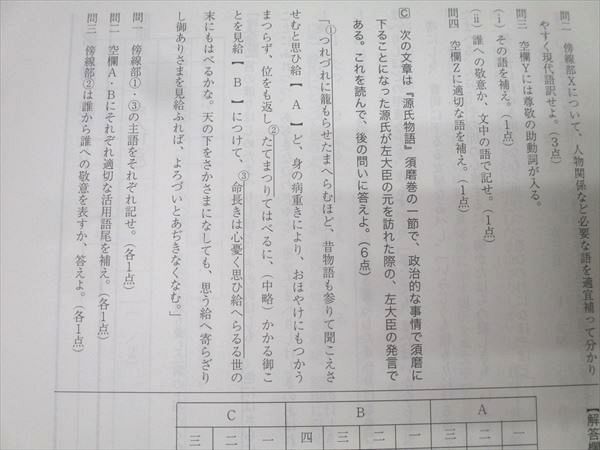 問二　傍線部Xについて、人物関係など必要な語を適宜補って分かり
やすく現代語訳せよ。（３点）
問三　空欄Yには尊敬の助動詞が入る。
（ⅰ）その語を補え。（１点）
（ⅱ）誰への敬意か、文中の語で記せ。（１点）
問四　空欄Zに適切な語を補え。（１点）
Ⓒ　次の文章は『源氏物語』須磨巻の一節で、政治的な事情で須磨に
下ることになった源氏が左大臣の元を訪れた際の、左大臣の発言で
ある。これを読んで、後の問いに答えよ。（６点）
「①つれづれに籠もらせたまへらむほど、昔物語も参りて聞こえさ
せむと思ひ給【　A　】ど、身の病重きにより、おほやけにもつかう
まつらず、位をも返し②たてまつりてはべるに、（中略）かかる御こ
とを見給【　B　】につけて、③命長きは心憂く思ひ給へらるる世の
末にもはべるかな。天の下をさかさまになしても、思う給へ寄らざり
し御ありさまを見給ふれば、よろづいとあぢきなくなむ。」
問一　傍線部①・③の主語をそれぞれ記せ。（各１点）
問二　空欄A・Bにそれぞれ適切な活用語尾を補え。（各１点）
問三　傍線部②は誰から誰への敬意を表すか、答えよ。（各１点）
【解答欄
A
一
二
三
B
一
二
三
四
C
一
二
三